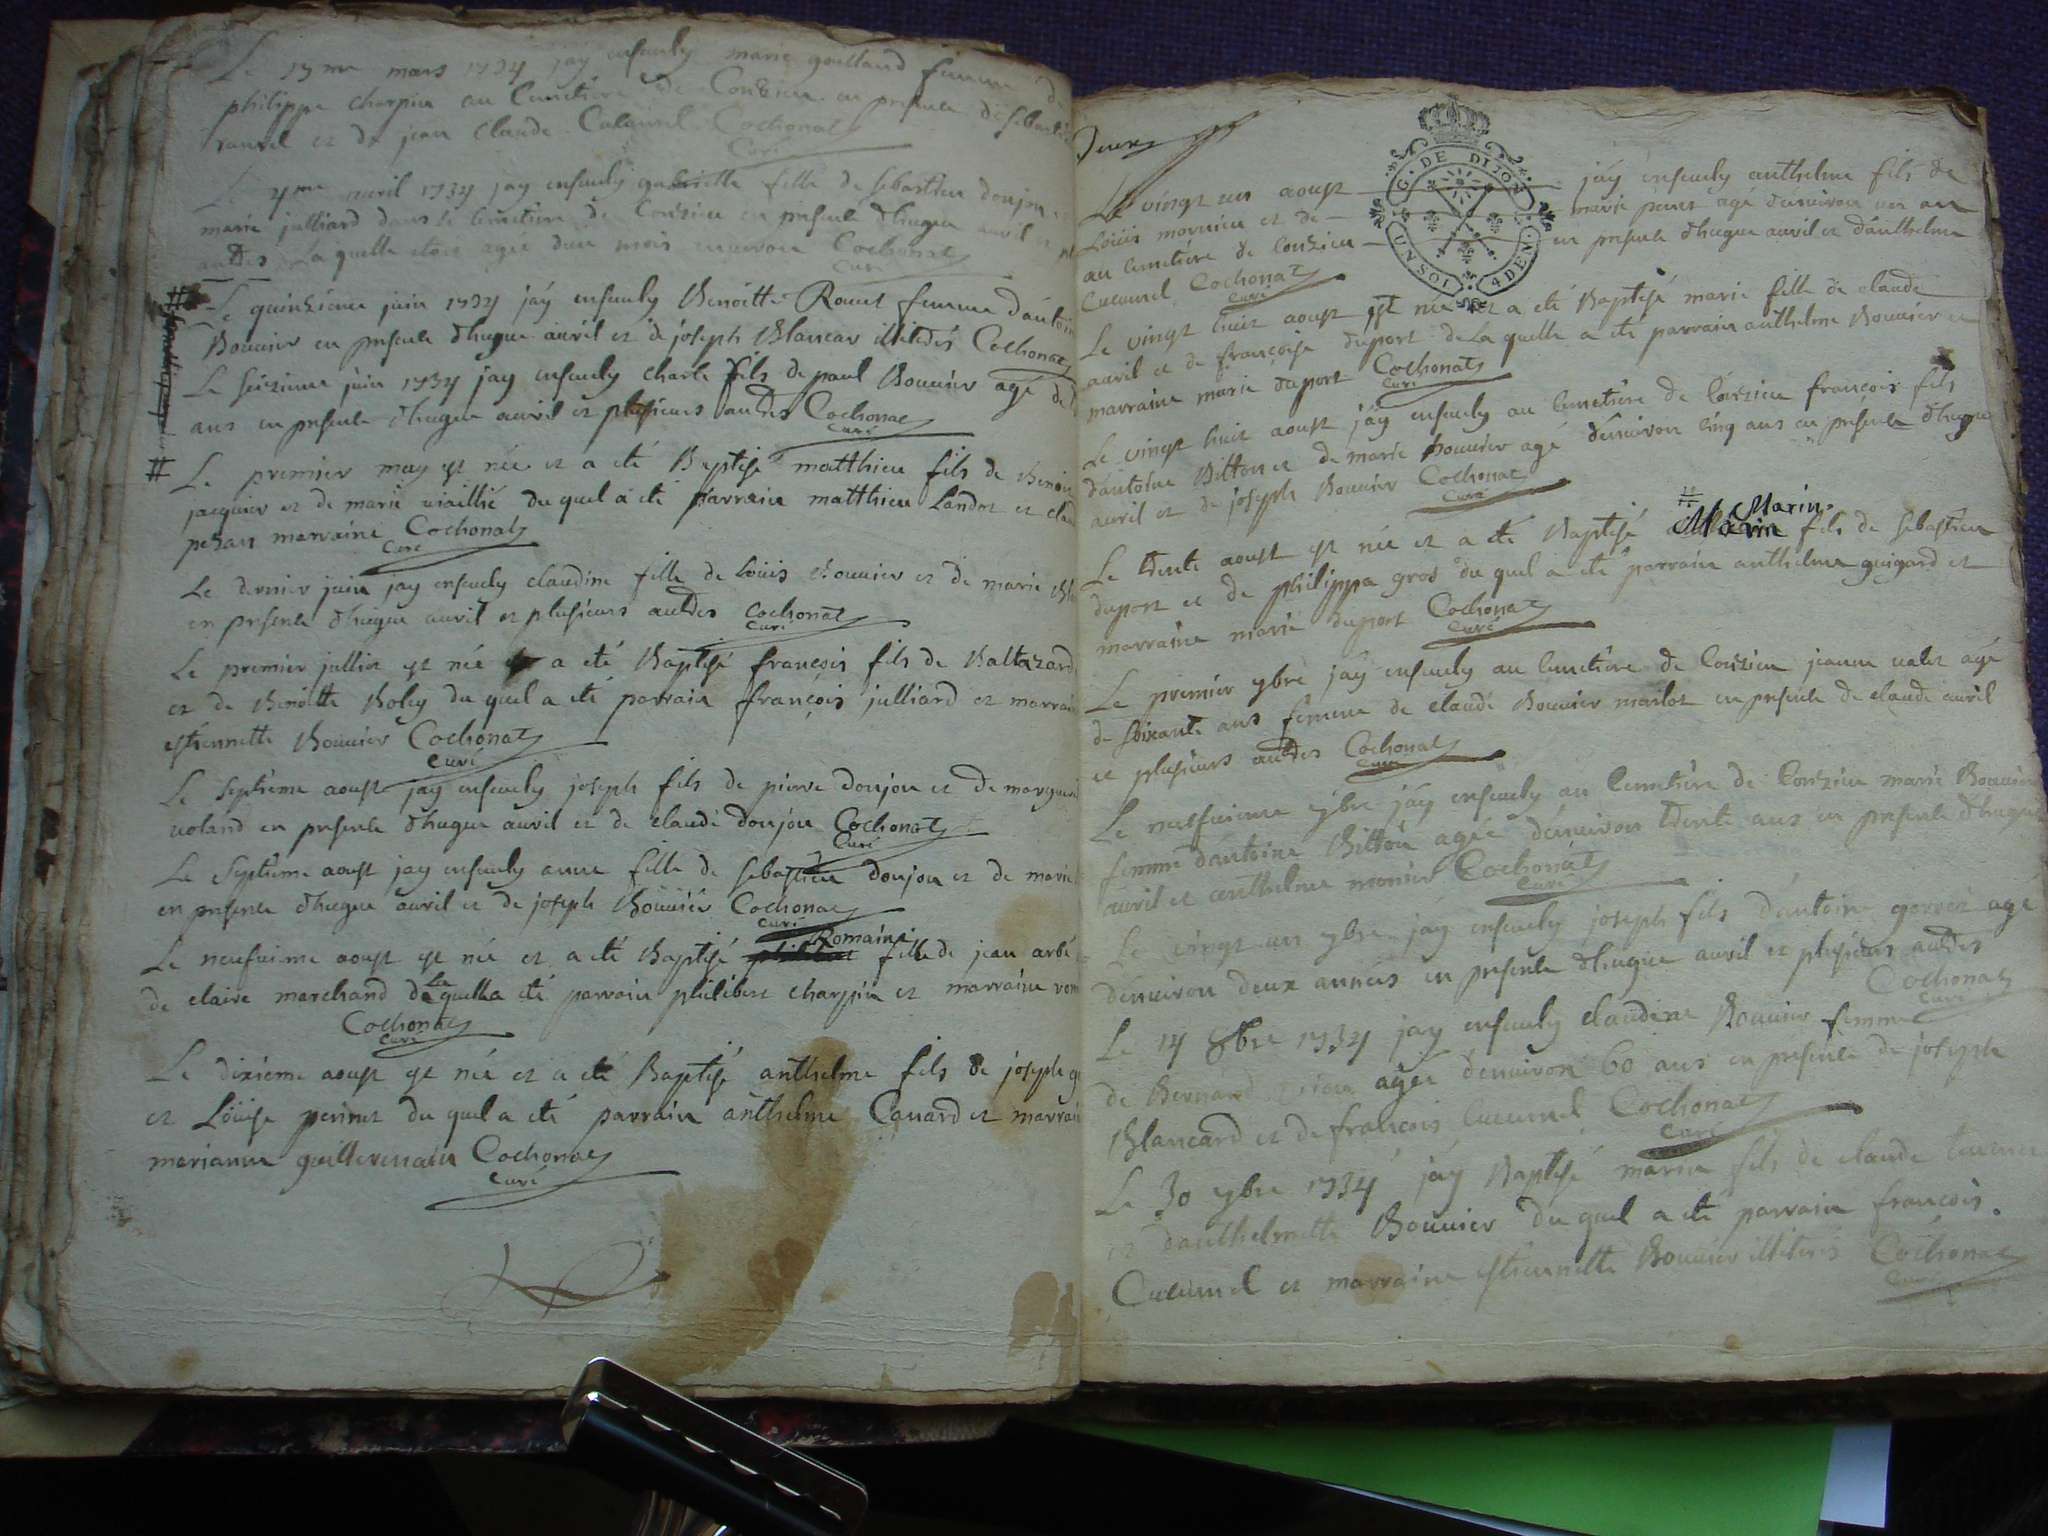 Le 17me mars 1734 jay enseuely marie goilland femme de
philippe charpin au Cemetiere de Conzieu en presence de sebastien
et de jean Claude Cucurnel Cochonat
Curé
Le 4me avril 1734 jay enseuely gabrielle fille de sebastien donjon et
marie julliard dans le cemetiere de Conzieu en presence dhugue avril et
autres laquelle etoit agée dun mois environ Cochonat
Curé
Le quinzieme juin 1734 jay enseuely Benoitte femme dantoine
Bouvier en presence dhugue avril et de joseph Blancar illiterés Cochonat
Le seizieme juin 1734 jay enseuely charle fils de paul Bouvier agé de
ans en presence dhugue avril et plusieurs autres Cochonat
Curé
# Le premier may est née et a eté Baptisé matthieu fils de Benoit
jacquier et de marie du quel a eté parrain matthieu Landet et
pezan marraine Cochonat
Curé
Le dernier juin jay enseuely claudine fille de Loüis Bouvier et de marie
en presence dhugue avril et plusieurs autres Cochonat
Curé
Le premier juillet est née et a eté Baptisé françois fils de Baltazard
et de Benoitte Boley du quel a eté parrain françois julliard et marraine
estiennette Bouvier Cochonat
Curé
Le septieme aoust jay enseuely joseph fils de pierre donjon et de marguerite
voland en presence dhugue avril et de claude donjon Cochonat
Curé
Le septieme aoust jay enseuely anne fille de sebastien donjon et de marie
en presence dhugue avril et de joseph Bouvier Cochonat
Curé
Romaine
Le neufuieme aoust est née et a eté Baptisé philibert fille de jean
de claire marchand de La quelle a eté parrain philibert charpin et marraine
Cochonat
Curé
Le dixieme aoust est née et a eté Baptisé anthelme fils de joseph
et Loüise perinet du quel a eté parrain anthelme Canard et marraine
marianne guillerminain Cochonat
Curé
G. DE DIJON
UN SOL 4 DEN.
Le vingt un aoust jay enseuely anthelme fils de
Loüis mornieu et de marie agé denuiron un an
au cemetiere de Conzieu en presence dhugue avril et danthelme
Cucurnel Cochonat
Curé
Le vingt huit aoust est née et a eté Baptisé marie fille de claude
avril et de françoise duport de La quelle a eté parrain anthelme Bouvier et
marraine marie duport Cochonat
Curé
Le vingt huit aoust jay enseuely au cemetiere de Conzieu françois fils
dantoine Bitton et de marie Bouvier agé denuiron cinq ans en présence dhugue
avril et de joseph Bouvier Cochonat
Curé
Marin
Le trente aoust est née et a eté Baptisé Marin fils de sebastien
duport et de philippa gros du quel a eté parrain anthelme guigard et
marraine marie duport Cochonat
Curé
Le premier 7bre jay enseuely au cemetiere de Conzieu jeanne valet agé
de soixante ans femme de claude Bouvier marlot en presence de claude avril
et plusieurs autres Cochonat
Curé
Le neufuieme 7bre jay enseuely au cemetiere de Conzieu marie Bouvier
femme dantoine Bitton agée denuiron trente ans en presence dhugue
avril et anthelme monier Cochonat
Curé
Le vingt un 7bre jay enseuely joseph fils dantoine agé
denuiron deux années en présence dhugue avril et plusieurs autres
Cochonat
Curé
Le 14 8bre 1734 jay enseuely claudine Bouvier femme
de Bernard agée denuiron 60 ans en presence de joseph
Blancard et de françois Cucurnel Cochonat
Curé
Le 30 9bre 1734 jay Baptisé marin fils de claude
et danthelmette Bouvier du quel a eté parrain françois
Cucurnel et marraine estiennette Bouvier illiterés Cochonat
Curé